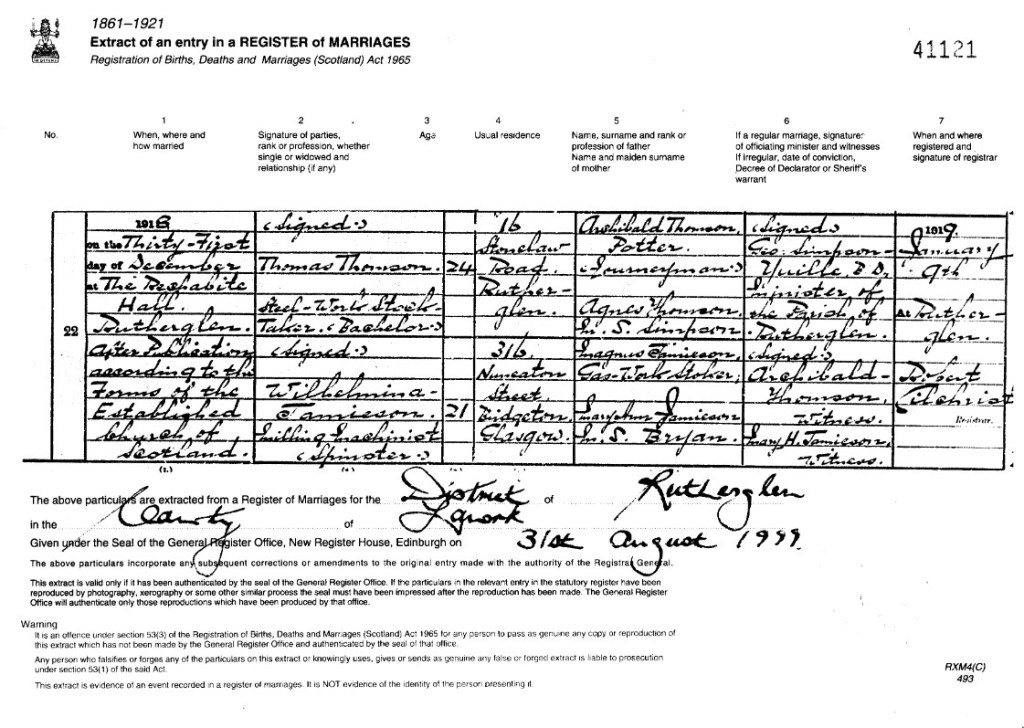 1861–1921
Extract of an entry in a REGISTER of MARRIAGES
Registration of Births, Deaths and Marriages (Scotland) Act 1965
41121
No.
1
When, where and
how married
2
Signature of parties,
rank or profession, whether
single or widowed and
relationship (if any)
3
Age
4
Usual residence
5
Name, surname and rank or
profession of father
Name and maiden surname
of mother
6
If a regular marriage, signature
of officiating minister and witnesses
If irregular, date of conviction,
Decree of Declarator or Sheriff's
warrant
7
When and where
registered and
signature of registrar
22
1918
on the Thirty-First
day of December
at The Rechabite
Hall.
Rutherglen.
After Publication
according to the
Forms of the
Established
Church of
Scotland.
(Signed.)
Thomas Thomson.
Steel-Work Stock-
Taker. (Bachelor.)
(Signed.)
Wilhelmina-
Jamieson.
Milling Machinist
(Spinster.)
24
21
16
Stonelaw
Road.
Ruther-
glen.
316
Nuneaton
Street.
Bridgeton.
Glasgow.
Archibald Thomson,
Potter.
(Journeyman.)
Agnes Thomson,
M.S. Simpson.
Magnus Jamieson,
Gas-Work Stoker,
Mary Ann Jamieson
M.S. Bryan.
(Signed.)
Geo. Simpson-
Yuille B.D.
Minister of
the Parish of
Rutherglen.
(Signed.)
Archibald-
Thomson,
Witness.
Mary H. Jamieson,
Witness.
1919.
January
9th
at Ruther-
glen.
Robert
Gilchrist
Registrar.
The above particulars are extracted from a Register of Marriages for the District of Rutherglen
in the County of Lanark
Given under the Seal of the General Register Office, New Register House, Edinburgh on 31st August 1999.
The above particulars incorporate any subsequent corrections or amendments to the original entry made with the authority of the Registrar General.
This extract is valid only if it has been authenticated by the seal of the General Register Office. If the particulars in the relevant entry in the statutory register have been
reproduced by photography, xerography or some other similar process the seal must have been impressed after the reproduction has been made. The General Register
Office will authenticate only those reproductions which have been produced by that office.
Warning
It is an offence under section 53(3) of the Registration of Births, Deaths and Marriages (Scotland) Act 1965 for any person to pass as genuine any copy or reproduction of
this extract which has not been made by the General Register Office and authenticated by the seal of that office.
Any person who falsifies or forges any of the particulars on this extract or knowingly uses, gives or sends as genuine any false or forged extract is liable to prosecution
under section 53(1) of the said Act.
This extract is evidence of an event recorded in a register of marriages. It is NOT evidence of the identity of the person presenting it.
RXM4(C)
493